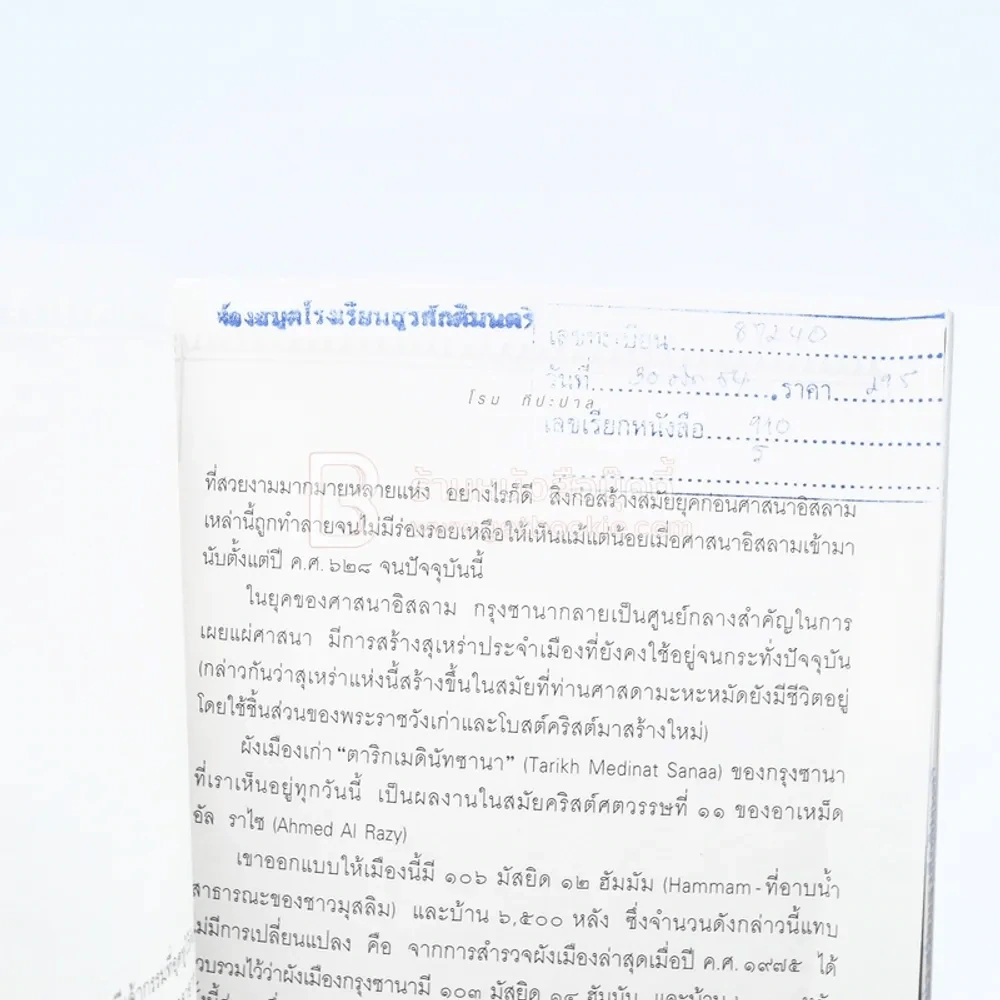 ห้องสมุดโรงเรียนสุรศักดิ์มนตรี
เลขทะเบียน 87240
วันที่ 30 54 ราคา 295
โรม ทีปะปาล
เลขเรียกหนังสือ 910
ที่สวยงามมากมายหลายแห่ง อย่างไรก็ดี สิ่งก่อสร้างสมัยยุคก่อนศาสนาอิสลาม
เหล่านี้ถูกทำลายจนไม่มีร่องรอยเหลือให้เห็นแม้แต่น้อยเมื่อศาสนาอิสลามเข้ามา
นับตั้งแต่ปี ค.ศ. ๖๒๘ จนปัจจุบันนี้
ในยุคของศาสนาอิสลาม กรุงซานากลายเป็นศูนย์กลางสำคัญในการ
เผยแผ่ศาสนา มีการสร้างสุเหร่าประจำเมืองที่ยังคงใช้อยู่จนกระทั่งปัจจุบัน
(กล่าวกันว่าสุเหร่าแห่งนี้สร้างขึ้นในสมัยที่ท่านศาสดามะหะหมัดยังมีชีวิตอยู่
โดยใช้ชิ้นส่วนของพระราชวังเก่าและโบสต์คริสต์มาสร้างใหม่)
ผังเมืองเก่า “ตาริกเมดินัทซานา” (Tarikh Medinat Sanaa) ของกรุงซานา
ที่เราเห็นอยู่ทุกวันนี้ เป็นผลงานในสมัยคริสต์ศตวรรษที่ ๑๑ ของอาเหม็ด
อัล ราไซ (Ahmed Al Razy)
เขาออกแบบให้เมืองนี้มี ๑๐๖ มัสยิด ๑๒ ฮัมมัม (Hammam - ที่อาบน้ำ
สาธารณะของชาวมุสลิม) และบ้าน ๖,๕๐๐ หลัง ซึ่งจำนวนดังกล่าวนี้แทบ
ไม่มีการเปลี่ยนแปลง คือ จากการสำรวจผังเมืองล่าสุดเมื่อปี ค.ศ. ๑๙๗๕ ได้
วบรวมไว้ว่าผังเมืองกรุงซานามี ๑๐๓ มัสยิด ๑๔ ฮัมมัม และบ้าน